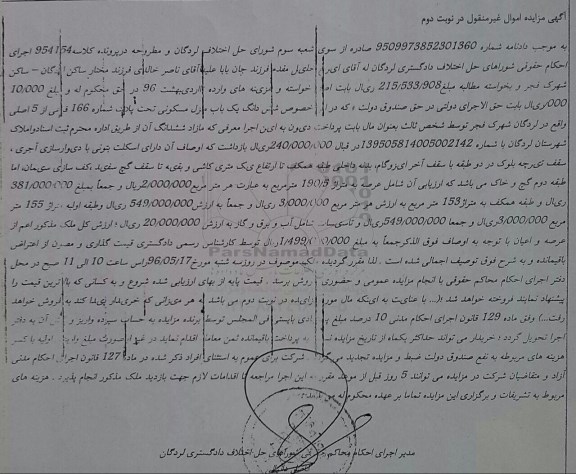 آگهی مزایده اموال غیرمنقول در نوبت دوم
به موجب دادنامه شماره 9509973852301360 صادره از سوی شعبه سوم شورای حل اختلاف لردگان و مطروحه درپرونده کلاسه 954154 اجرای
احکام حقوقی شوراهای حل اختلاف دادگستری لردگان له آقای جلیل مقدم فرزند جان بابا علیه آقای ناصر خالدی فرزند مختار ساکن لردگان – ساکن
شهرک فجر و بخواسته مطالبه مبلغ 215/533/908 ریال بابت اصل خواسته و هزینه های وارده اردیبهشت 96 در حق محکوم له و مبلغ 10/000
/000 ریال بابت حق الاجرای دولتی در حق صندوق دولت ؛ که در خصوص شش دانگ یک باب منزل مسکونی تحت پلاک شماره 166 فرعی از 5 اصلی
واقع در لردگان شهرک فجر توسط شخص ثالث بعنوان مال بابت پرداخت دیون به این اجرا معرفی که مازاد ششدانگ آن از طریق اداره محترم ثبت اسناد واملاک
شهرستان لردگان با شماره 139505814005002142 در قبال 240/000/000 ریال بازداشت که اوصاف آن دارای اسکلت بتونی با دیوارسازی آجری ،
سقف تیرچه بلوک در دو طبقه با سقف آخر ایزوگام، بدنه داخلی طبقه همکف تا ارتفاع یک متری کاشی و بقیه تا سقف گچ سفید ،کف سازی سیمان، اما
طبقه دوم گچ و خاک می باشد که ارزیابی آن شامل عرصه به متراژ 190/5 متر به عبارت هر متر مربع 2/000/000 ریال و جمعاً بمبلغ 381/000/000
ریال و طبقه همکف به متراژ 153 متر مربع به ارزش هر متر مربع 3/000/000 ریال و جمعاً به ارزش 549/000/000 ریال وطبقه اول به متراژ 155 متر
مربع 3/000/000 ریال و جمعا 549/000/000 ریال و تاسیسات شامل آب و برق و گاز به ارزش 20/000/000 ریال ؛ ارزش کل ملک مذکور اعم از
عرصه و اعیان با توجه به اوصاف فوق الذکر جمعاً به مبلغ 1/499/000/000 ریال توسط کارشناس رسمی دادگستری قیمت گذاری و مصون از اعتراض
باقیمانده و به شرح فوق توصیف اجمالی شده است . لذا مقرر گردیده ملک موصوف در روز سه شنبه مورخ 96/05/17 راس ساعت 10 الی 11 صبح در محل
دفتر اجرای احکام محاکم حقوقی با انجام مزایده عمومی و حضوری بفروش برسد . قیمت پایه از بهای ارزیابی شده شروع و به کسانی که بالاترین قیمت را
پیشنهاد نمایند فروخته خواهد شد ؛(... با عنایت به اینکه مال مورد مزایده در نوبت دوم می باشد به هر میزانی که خریدار پیدا کند به فروش خواهد
رفت...) وفق ماده 129 قانون اجرای احکام مدنی 10 درصد مبلغ پیشنهادی بایستی فی المجلس توسط برنده مزایده به حساب سپرده واریز و فیش آن به دفتر
اجرا تحویل گردد ؛ خریدار می تواند حداکثر یکماه از تاریخ مزایده نسبت به پرداخت باقیمانده ثمن معامله اقدام نماید در غیر اینصورت مبلغ واریزی اولیه با کسر
هزینه های مربوطه به نفع صندوق دولت ضبط و مزایده تجدید می گردد. شرکت برای عموم به استثنای افراد ذکر شده در ماده 127 قانون اجرای احکام مدنی
آزاد و متقاضیان شرکت در مزایده می توانند 5 روز قبل از موعد مقرر به این اجرا مراجعه تا اقدامات لازم جهت بازدید ملک مذکور انجام پذیرد . هزینه های
مربوط به تشریفات و برگزاری این مزایده تماما بر عهده محکوم له می باشد.
مدیر اجرای احکام محاکم حقوقی شوراهای حل اختلاف دادگستری لردگان
ParsNamadData